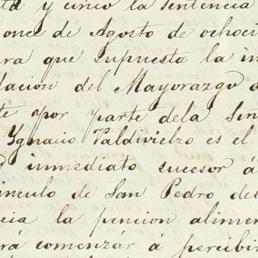 y cinco la sentencia
once de Agosto de ochoci
ra que supuesta la in
dacion del Mayorazgo
te por parte dela Señ
Ygnacio Valdivielzo es el
inmediato sucesor á
vinculo de San Pedro del
cia la pencion alimen
rá comenzár á percibir